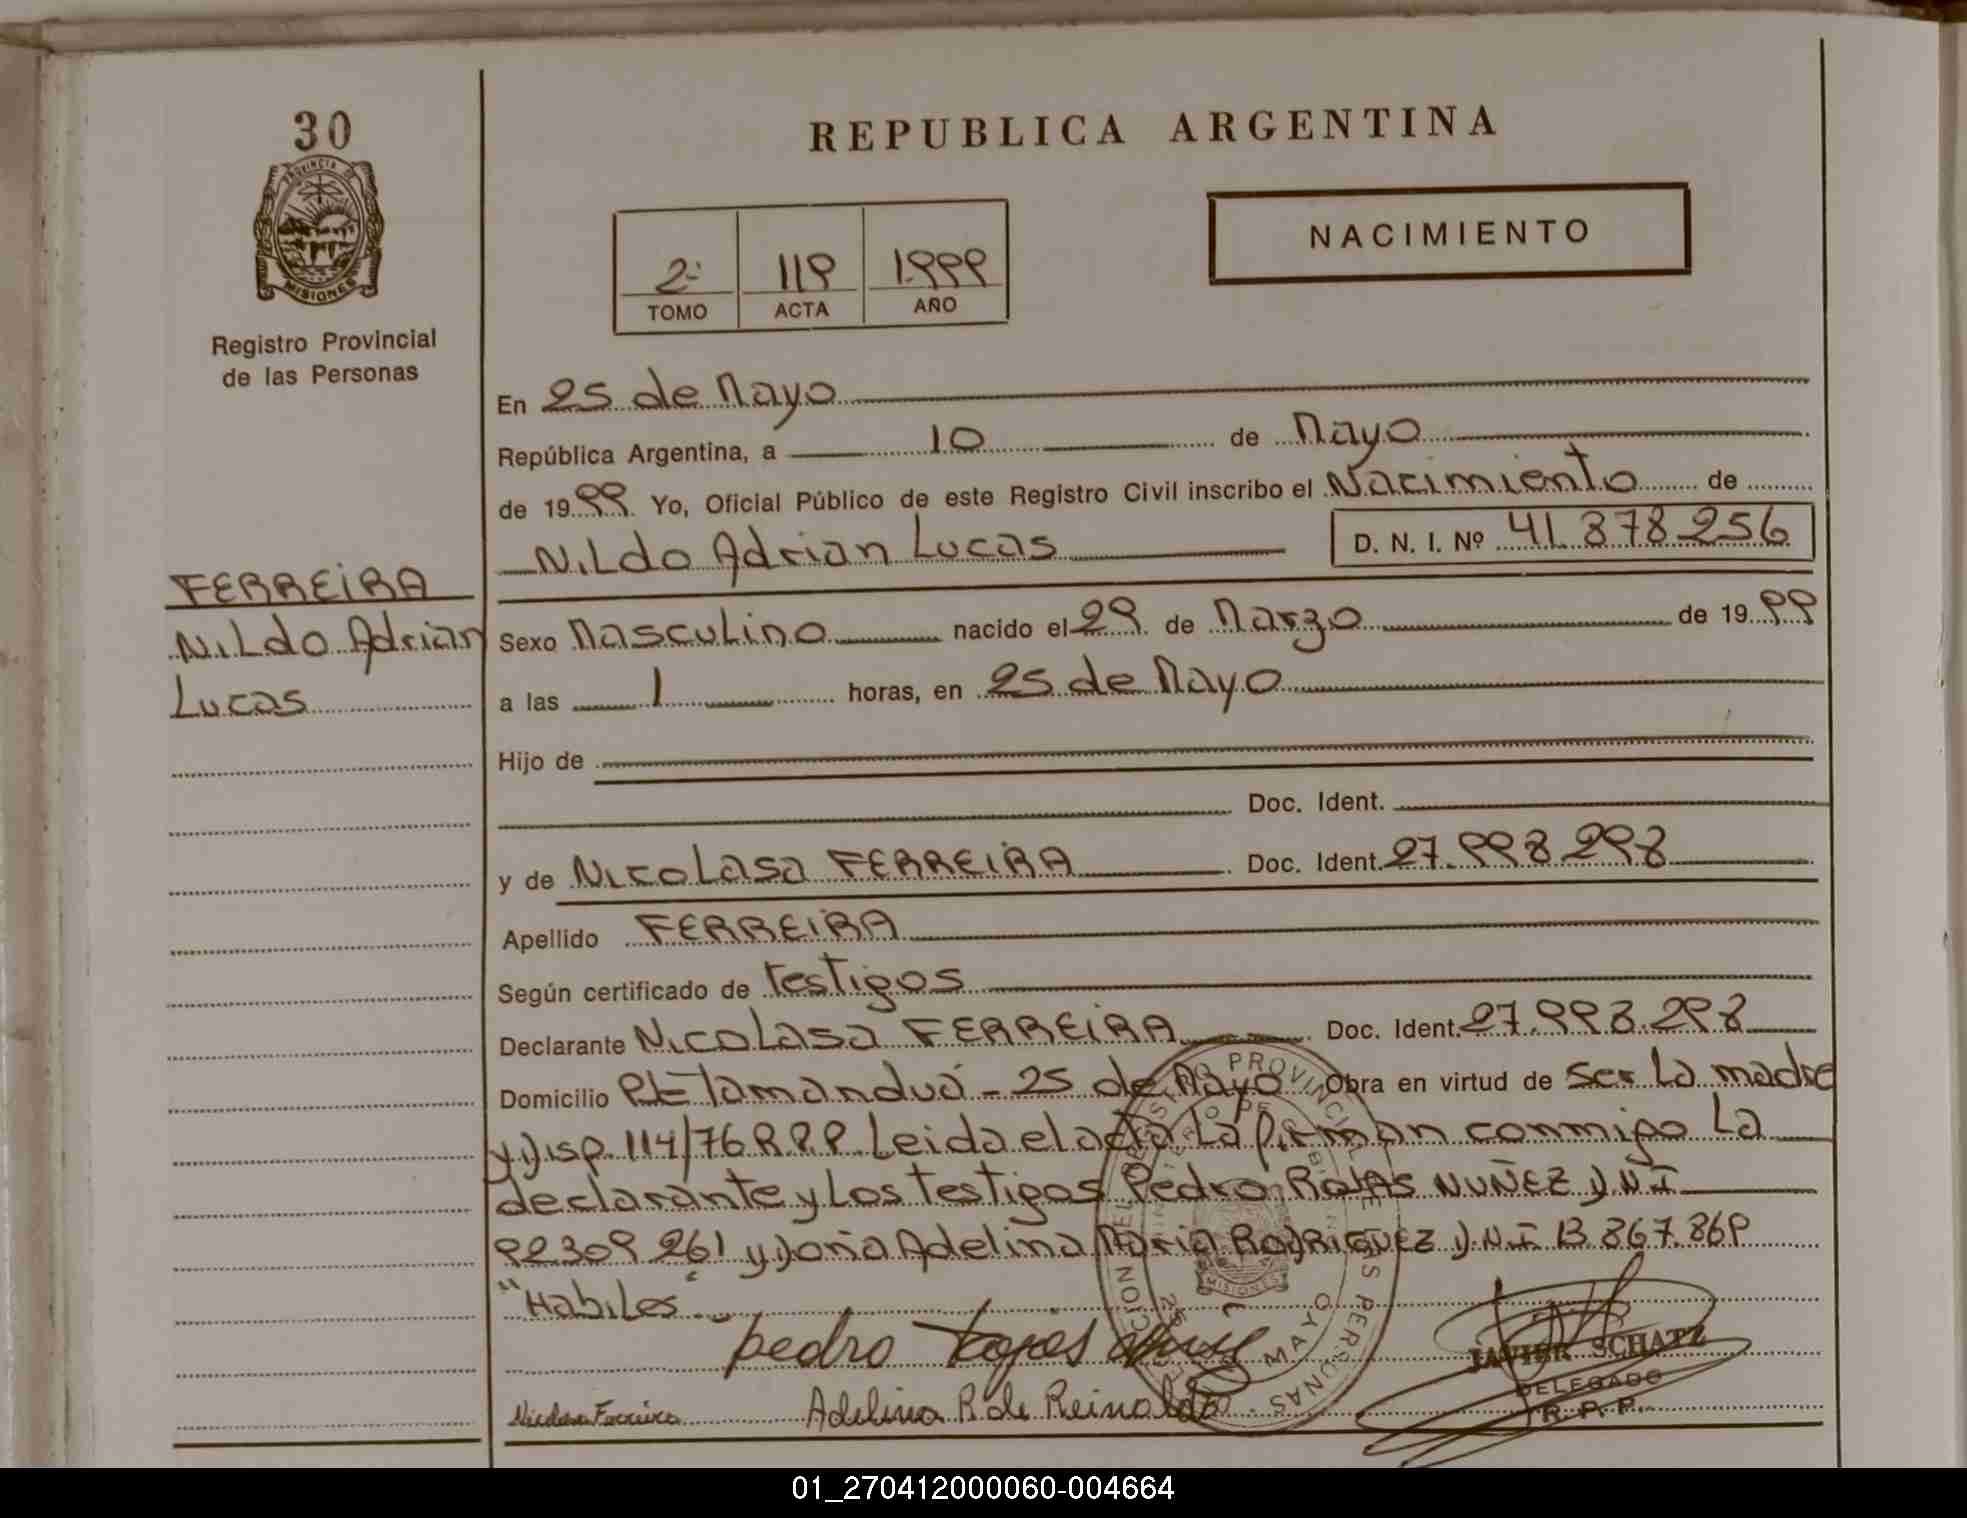 30
PROVINCIA DE
MISIONES
Registro Provincial
de las Personas
FERREIRA
Nildo Adrian
Lucas
REPUBLICA ARGENTINA
2º 119 1.999
TOMO ACTA AÑO
NACIMIENTO
En 25 de Mayo
República Argentina, a 10 de Mayo
de 1999 Yo, Oficial Público de este Registro Civil inscribo el Nacimiento de
Nildo Adrian Lucas D. N. I. Nº 41.878.256
Sexo Masculino nacido el 29 de Marzo de 1999
a las 1 horas, en 25 de Mayo
Hijo de
Doc. Ident.
y de Nicolasa FERREIRA Doc. Ident. 27.998.298
Apellido FERREIRA
Según certificado de testigos
Declarante Nicolasa FERREIRA Doc. Ident. 27.998.298
Domicilio Pje Tamanduá - 25 de Mayo Obra en virtud de ser la madre
y Disp. 114/76 R.P.P. Leida el acta la firman conmigo la
declarante y los testigos Pedro ROJAS NUÑEZ D.N.I
92309261 y Doña Adelina Maria RODRIGUEZ D.N.I 13.867.869
"Habiles".
pedro Rojas Nuñez
JAVIER SCHATZ
DELEGADO
R. P. P.
Nicolasa Ferreira Adelina R. de Reinaldo
MISIONES
25 DE MAYO
01_270412000060-004664